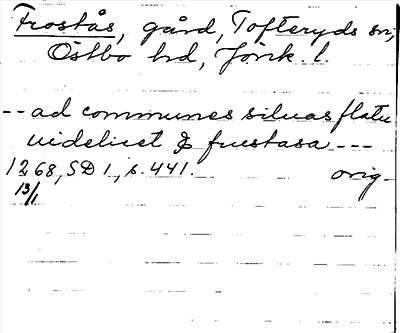 Frostås, gård, Tofteryds sn,
Östbo hd, Jönk. l.
-- ad communes siluas flatu
uidelicet & frustasa ---
1268, SD 1, s. 441. orig.
13/1